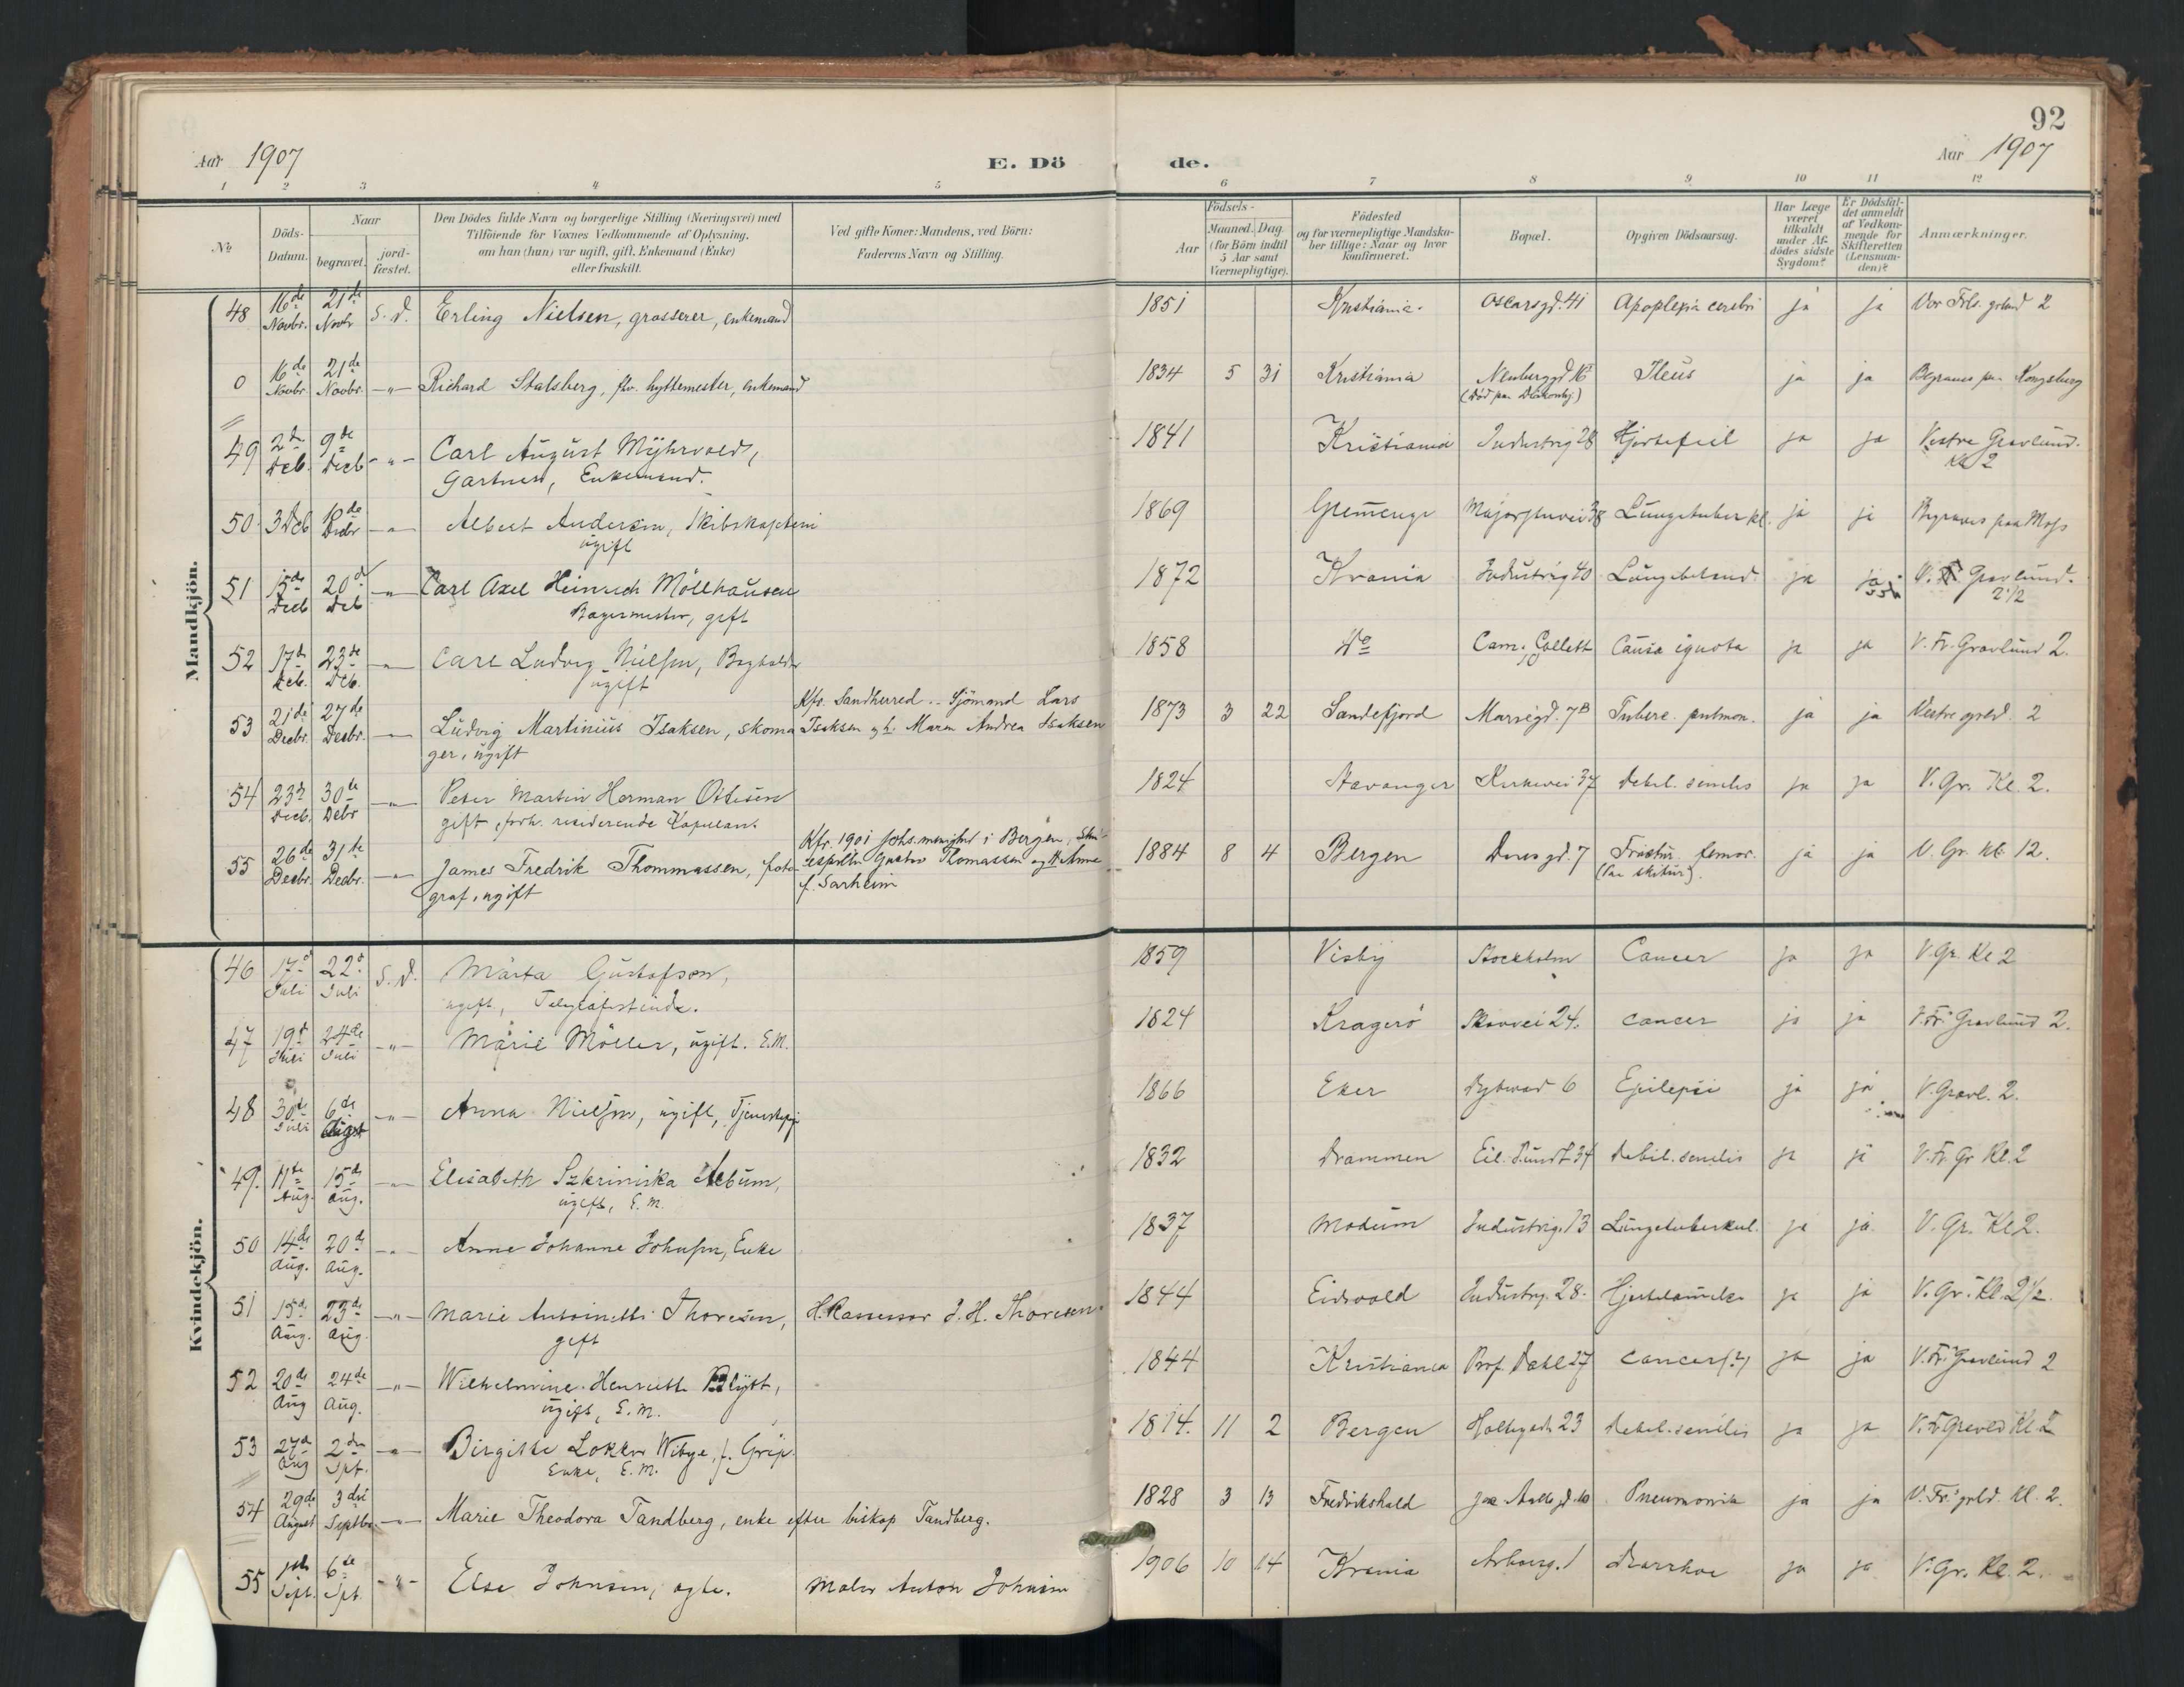 92
Aar 1907
E. Dö
de.
Aar 1907
1 2 3 4 5 6 7 8 9 10 11 12
No
Döds-
Datum.
Naar
begravet.
jord-
fæstet.
Den Dödes fulde Navn og borgerlige Stilling (Næringsvei) med
Tilföiende for Voxnes Vedkommende af Oplysning,
om han (hun) var ugift, gift, Enkemand (Enke)
eller fraskilt.
Ved gifte Koner: Mandens, ved Börn:
Faderens Navn og Stilling.
Födsels-
Aar
Maaned. Dag.
(for Börn indtil
5 Aar samt
Værnepligtige).
Födested
og for værnepligtige Mandska-
ber tillige: Naar og hvor
konfirmeret.
Bopæl.
Opgiven Dödsaarsag.
Har Læge
været
tilkaldt
under Af-
dödes sidste
Sygdom?
Er Dödsfal-
det anmeldt
af Vedkom-
mende for
Skifteretten
(Lensman-
den)?
Anmærkninger.
Mandkjön.
48 16de Novbr. 21de Novbr S. D. Erling Nielsen, grosserer, enkemand 1851 Kristiania. Oscarsgd. 41 Apoplexia cerebri ja ja Vor Frls. grlund 2
0 16de Novbr. 21de Novbr. -"- Richard Stalsberg, fhv. hyttemester, enkemand 1834 5 31 Kristiania Neuberggd 16 Ileus ja ja Begraves paa Kongsberg
(Död paa Diakonhj.)
49 2den Decb. 9de Decb -"- Carl August Myhrvold, 1841 Kristiania Industrig 28 Hjertefeil ja ja Vestre Gravlund.
Gartner, Enkemand. Kl 2
50 3 Decb 10de Decbr -"- Albert Andersen, Skibskaptein 1869 Glemminge Majorstuvei 38 Lungetuberkl. ja ja Begraves paa Moss
ugift
51 15de Decb 20de Decb -"- Carl Axel Heinrich Möllhausen 1872 Krania Industrig 40 Lungebetænd. ja ja V. Gravlund.
Bagermester, gift 2 1/2
52 17de Decb. 23de Decb. -"- Carl Ludvig Nielsen, Bogholder 1858 Do Cam. Collett 10 Causa ignota ja ja V. Fr. Gravlund 2.
ugift
Kfr. Sandherred .. Sjömand Lars
53 21de Decbr. 27de Decbr. -"- Ludvig Martinius Isaksen, skoma Isaksen og h. Maren Andrea Isaksen 1873 3 22 Sandefjord Marregd. 7B Tuberc. pulmon. ja ja Vestre grld. 2
ger, ugift
54 23de Decb. 30de Decbr -"- Peter Martin Herman Ottesen 1824 Stavanger Kirkevei 37 Debil. senilis ja ja V. Gr. Kl. 2.
gift, forh. residerende Kapellan.
Kfr. 1901 Johs. menighed i Bergen, Sku-
55 26de Decbr. 31te Decbr. -"- James Fredrik Thommassen, foto- espiller Gustav Thomassen og H. Anna 1884 8 4 Bergen Daas gd. 7 Fractur. femor. ja ja V. Gr. Kl. 12.
graf, ugift f. Sarheim (Paa skitur).
Kvindekjön.
46 17de Juli 22de Juli S. D. Märta Gustafson, 1859 Visby Stockholm Cancer ja ja V. Gr. Kl 2
ugift, Telegrafistinde.
47 19de Juli 24de Juli -"- Marie Möller, ugift. E.M. 1824 Kragerö Skovvei 24. Cancer ja ja V. Fr. Gravlund 2.
48 30de Juli 6de August -"- Anna Nielsen, ugift, Tjenestepige 1866 Eker Dybwad 6 Epilepsi ja ja V. Gravl. 2.
49. 11te Aug. 15de Aug. -"- Elisabeth Szkriniska Album, 1832 Drammen Eil. Sundt 34 Debil. senilis ja ja V. Fr. Gr Kl. 2
ugift, E.M.
50 14de Aug. 20de Aug. -"- Anne Johanne Johnsen, Enke 1837 Modum Industrig. 13 Lungetuberkul. ja ja V. Gr. Kl 2.
51 15de Aug. 23de Aug. -"- Marie Antoinette Thoresen, H.R.assessor J. H. Thoresen. 1844 Eidsvold Industrig. 28. ja ja V. Gr. Kl. 2 1/2.
gift
52 20de Aug 24de Aug. -"- Wilhelmine Henriette Blytt, 1844 Kristiania Prof. Dahl 27 Cancer (?) ja ja V. Fr. Gravlund 2
ugift, E.M.
53 27de Aug 2den Spt. -"- Birgitte Lokker Wibye, f. Grip. 1814. 11 2 Bergen Holtegade 23 Debil. senilis ja ja V. Fr Gravld Kl. 2
Enke, E.M.
54 29de August 3die Septbr. -"- Marie Theodora Tandberg, enke efter biskop Tandberg. 1828 3 13 Fredrikshald Jac. Aalls gd. 10 Pneumonia ja ja V. Fr. grld. Kl. 2.
55 1ste Sept. 6de Spt. -"- Else Johnsen, egte. Maler Anton Johnsen 1906 10 14 Krania Arboesg. 1 Diarrhoe ja ja V. Gr. Kl. 2.